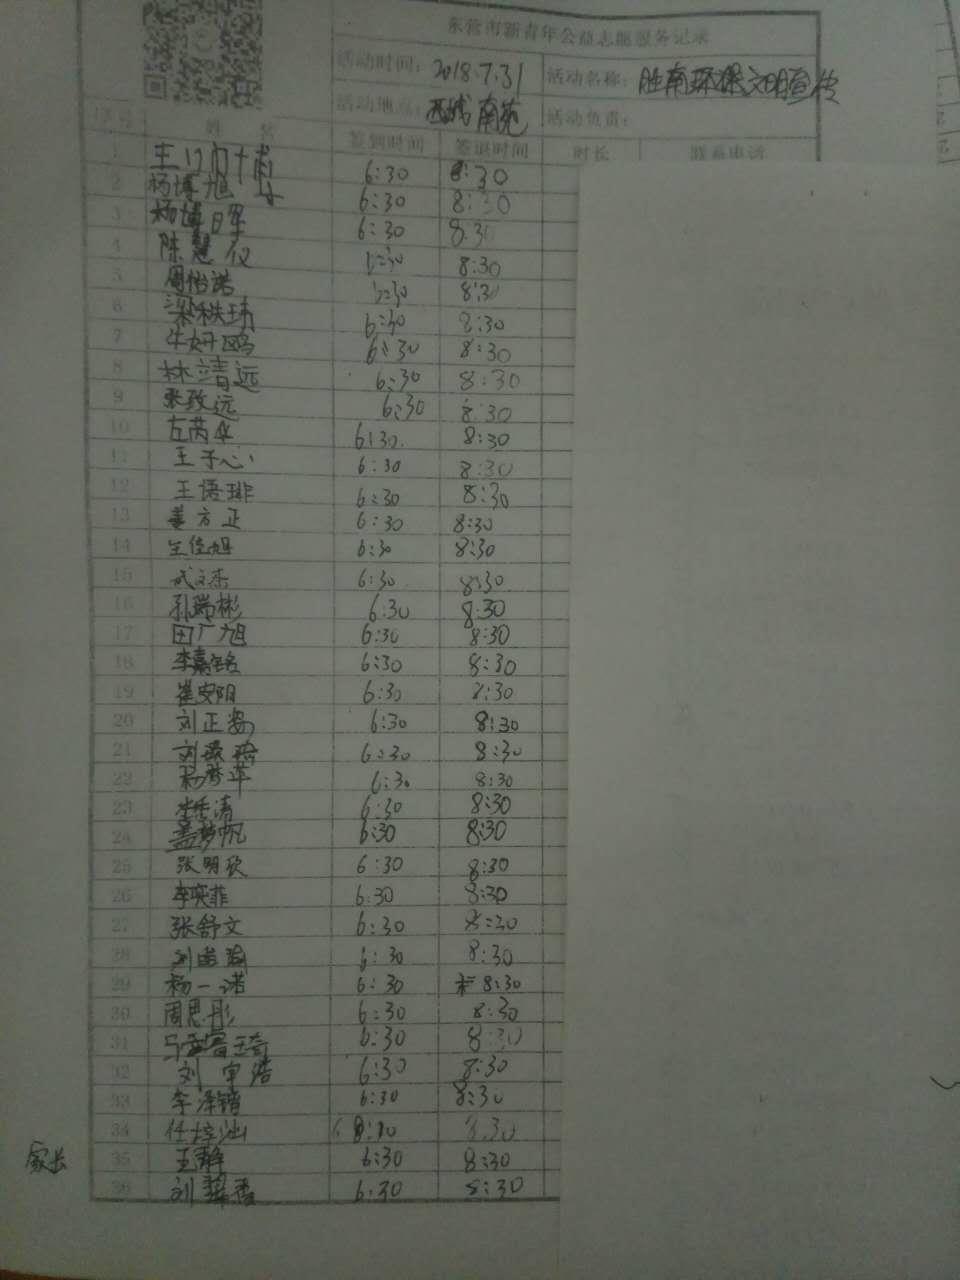 东营市新青年公益志愿服务记录
活动时间: 2018.7.31 活动名称: 胜南环保文明宣传
活动地点: 西城南苑 活动负责:
序号 姓 名 签到时间 签退时间 时长 联系电话
1 6:30 8:30
2 杨博旭 6:30 8:30
3 杨博晖 6:30 8:30
4 陈慧仪 6:30 8:30
5 周怡诺 6:30 8:30
6 梁轶玮 6:30 8:30
7 牛妍鸥 6:30 8:30
8 林靖远 6:30 8:30
9 张致远 6:30 8:30
10 左芮伞 6:30 8:30
11 王子心 6:30 8:30
12 王语琲 6:30 8:30
13 姜方正 6:30 8:30
14 王佳旭 6:30 8:30
15 武文杰 6:30 8:30
16 孔瑞彬 6:30 8:30
17 田广旭 6:30 8:30
18 李嘉铭 6:30 8:30
19 崔安阳 6:30 8:30
20 刘正 6:30 8:30
21 刘 6:30 8:30
22 杨梦苹 6:30 8:30
23 涛 6:30 8:30
24 盖梦帆 6:30 8:30
25 张明欣 6:30 8:30
26 李奕菲 6:30 8:30
27 张舒文 6:30 8:30
28 刘 6:30 8:30
29 杨一诺 6:30 8:30
30 周思彤 6:30 8:30
31 马 琦 6:30 8:30
32 刘宇浩 6:30 8:30
33 李泽锴 6:30 8:30
34 任 8:30
家长 35 王静 6:30 8:30
36 刘 香 6:30 8:30